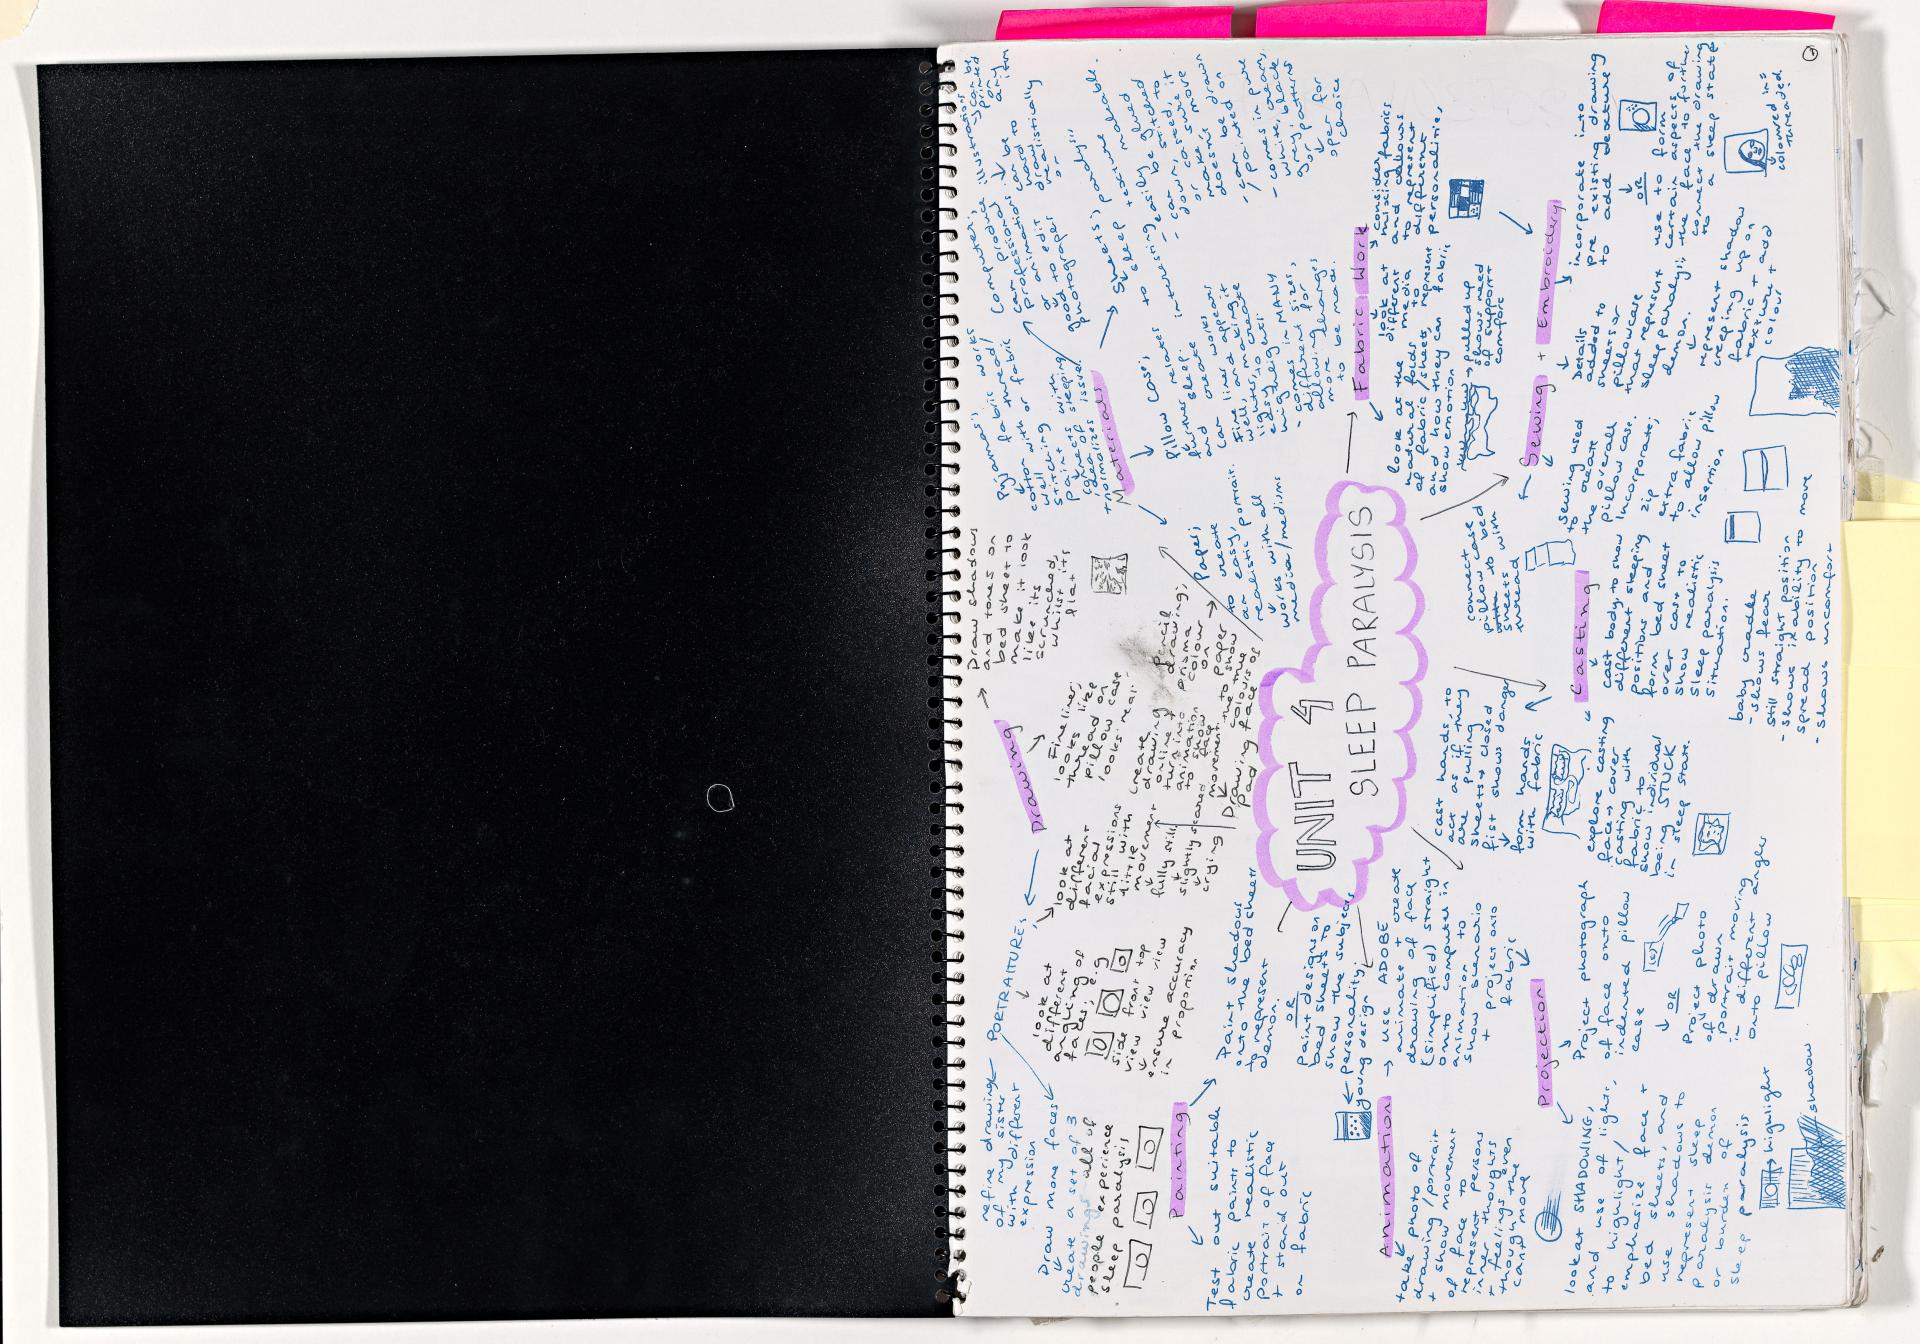 UNIT 4
SLEEP PARALYSIS
PORTRAITURE;
refine drawing
of my sister
with different
expression
Draw more faces
create a set of 3
drawings all of
people experience
sleep paralysis
look at
different
angling of
faces; e.g
side front top
view view view
ensure accuracy
in proportion
look at
different
facial
expressions
still with
little
movement
fully still
slightly scared
crying
Drawing
Fineliner;
looks like
thread on
pillow case
Draw shadows
and tones on
bed sheet to
make it look
like its
scrunched,
whilst its
flat
create
drawing
online +
turn into
animation
to show
face
movement.
Pencil
drawing;
prisma
colour
on
paper
to show
the
colours of
face
Materials
Pyjamas;
cotton fabric works
well with thread/
stitching or fabric
paint with
connects sleeping
idealizes issue/
normalizes
Computer;
can produce
professional
animations
or edit
to
good
photographs
illustrations
can be printed
on
any
item
can be
hard to
draw
realistically
Sheets;
sleep paralysis
to become relatable.
easily be glued
or stitched
down, case it to
or sure move
make's drawn
doesn't be on
- can painted
- comes in pure
white, cream,
grey, black
or patterns
open for
choice
Pillow case;
relates
further sleep.
and create
interesting
works
Fine liner appears
well, making it
lighter, create
easy to cuts
- comes in MANY
different sizes,
allowing for
more changes
to be made.
Paper;
to create
an easy,
realistic portrait.
works with all
media/mediums
Fabric Work
consider
mixing fabrics
and allows
to represent
different
personalities,
look at
different
media
to
represent
fabric
look at the
natural folds
of fabric/sheets,
and how they can
show emotion
pulled up
shows need
of support
comfort
Sewing + Embroidery
incorporate into
pre existing drawing
to add texture
OR
use to form
certain aspects of
the face to further
connect the drawing
to a sleep state
coloured in =
threaded
Details
added to
sheets or
pillowcase
that represent
sleep paralysis
demon.
represent shadow
creeping up on
fabric + add
texture +
colour
sewing used
to create
the overall
pillow case.
Incorporate;
zip
extra fabric
to allow pillow
insertion
connect case
pillow to bed
sheets with
thread
Casting
cast body to show
different sleeping
positions and
form bed sheet
over cast to
show realistic
sleep paralysis
situation.
baby cradle
- shows fear
still straight position
- shows inability to move
spread position
- shows uncomfort
cast hands, to
act as if they
are pulling
sheets + closed
fist shows danger
form hands
with fabric
explore casting
face → cover
casting with
fabric to
show individual
being STUCK
in sleep state.
Painting
Paint shadows
onto the bed sheets
to represent
demon.
OR
Paint designs on
bed sheets to
show the subjects
personality.
young design
Test out suitable
fabric paints to
create realistic
portrait of face
+ stand out
on fabric
Animation
→ use ADOBE
animate + create
drawing of face
(simplified) straight
onto computer in
animation to
show scenario
+ project onto
fabric
take photo of
drawing/portrait
+ show movement
of face to
represent persons
inner thoughts
+ feelings even
though they
can't move
Projection
Project photograph
of face onto
indented pillow
case
OR
Project photo
of drawn
portrait moving
in different angles
onto pillow
look at SHADOWING,
and use of light,
to highlight/
emphasize face +
bed sheets, and
use shadows to
represent sleep
paralysis demon
or burden of
sleep paralysis
highlight
shadow